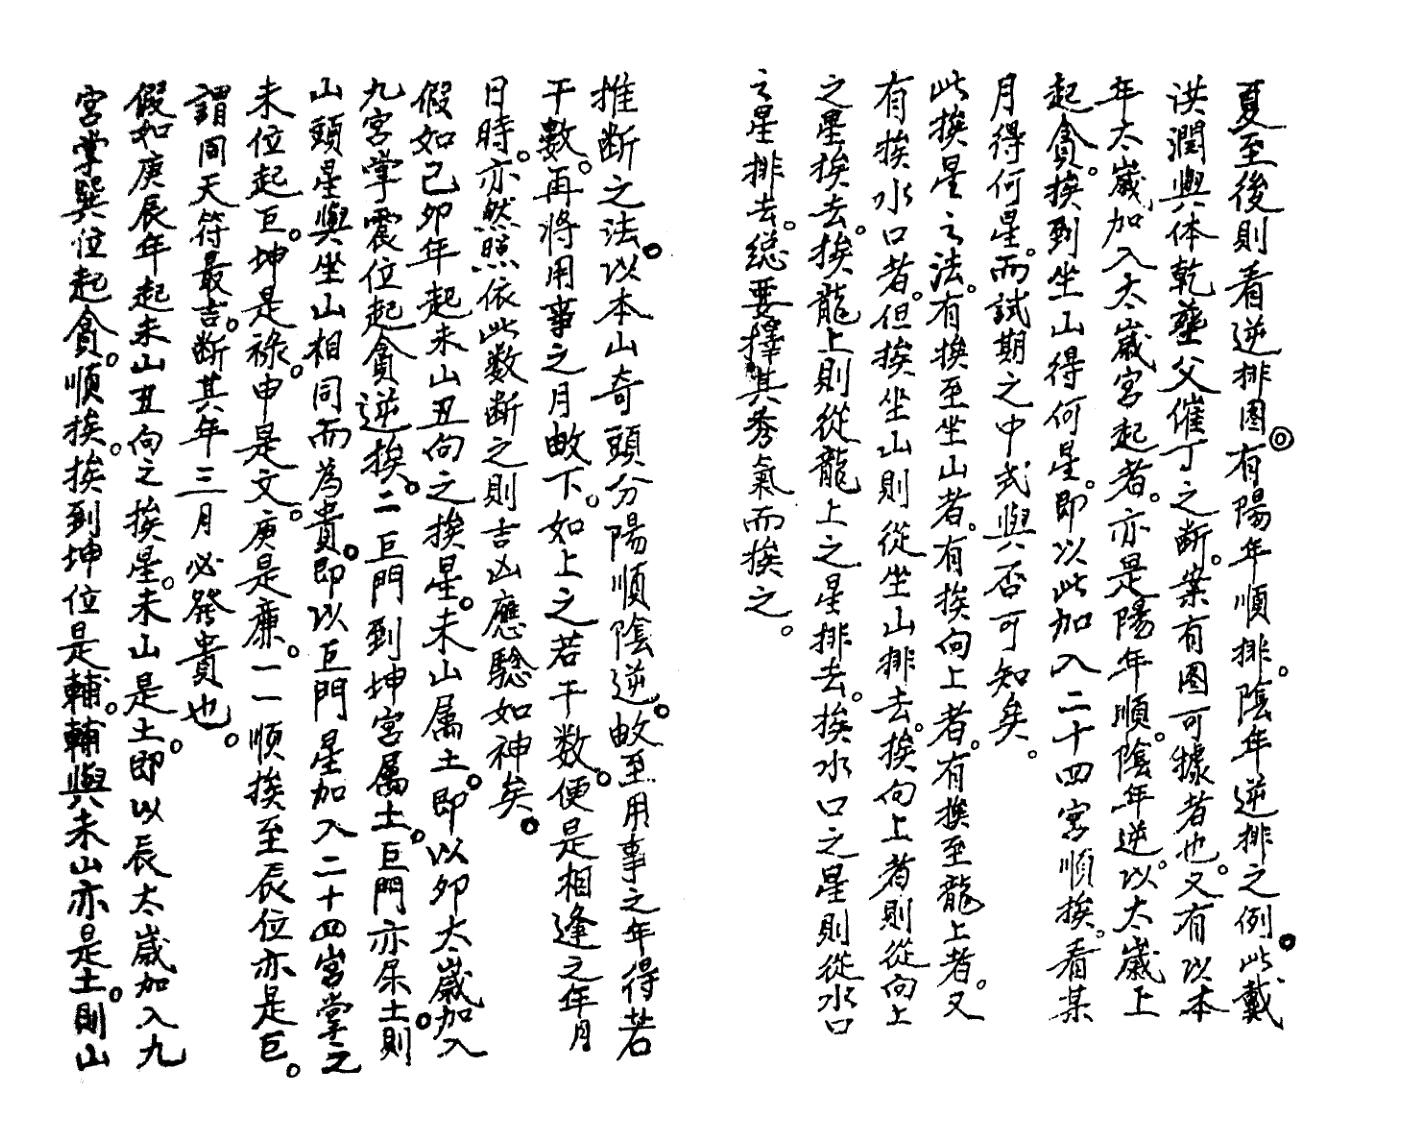 夏至後則看逆排图◎有陽年順排。陰年逆排之例。此戴
洪潤與体乾塟父催丁之断。案有图可據者也。又有以本
年太歲加入太歲宮起者。亦是陽年順。陰年逆。以太歲上
起貪。挨到坐山得何星。即以此加入二十四宮順挨。看某
月得何星。而試期之中式與否可知矣。
此挨星之法。有挨至坐山者。有挨向上者。有挨至龍上者。又
有挨水口者。但挨坐山則從坐山排去。挨向上者則從向上
之星挨去。挨龍上則從龍上之星排去。挨水口之星則從水口
之星排去。総要擇其秀氣而挨之。
推断之法。以本山奇頭分陽順陰逆。畝至用事之年得若
干數。再將用事之月畝下。如上之若干数。便是相逢之年月
日時。亦然照依此数断之則吉凶應騐如神矣。
假如己卯年起未山丑向之挨星。未山属土。即以卯太歲加入
九宮掌震位起貪逆挨。二巨門到坤宮属土。巨門亦屎土。則
山頭星與坐山相同而為貴。即以巨門星加入二十四宮掌之
未位起巨。坤是祿。申是文。庚是廉。一一順挨至辰位亦是巨。
謂同天符最吉。断其年三月必發貴也。
假如庚辰年起未山丑向之挨星。未山是土。即以辰太歲加入九
宮掌巽位起貪。順挨。挨到坤位是輔。輔與未山亦是土。則山